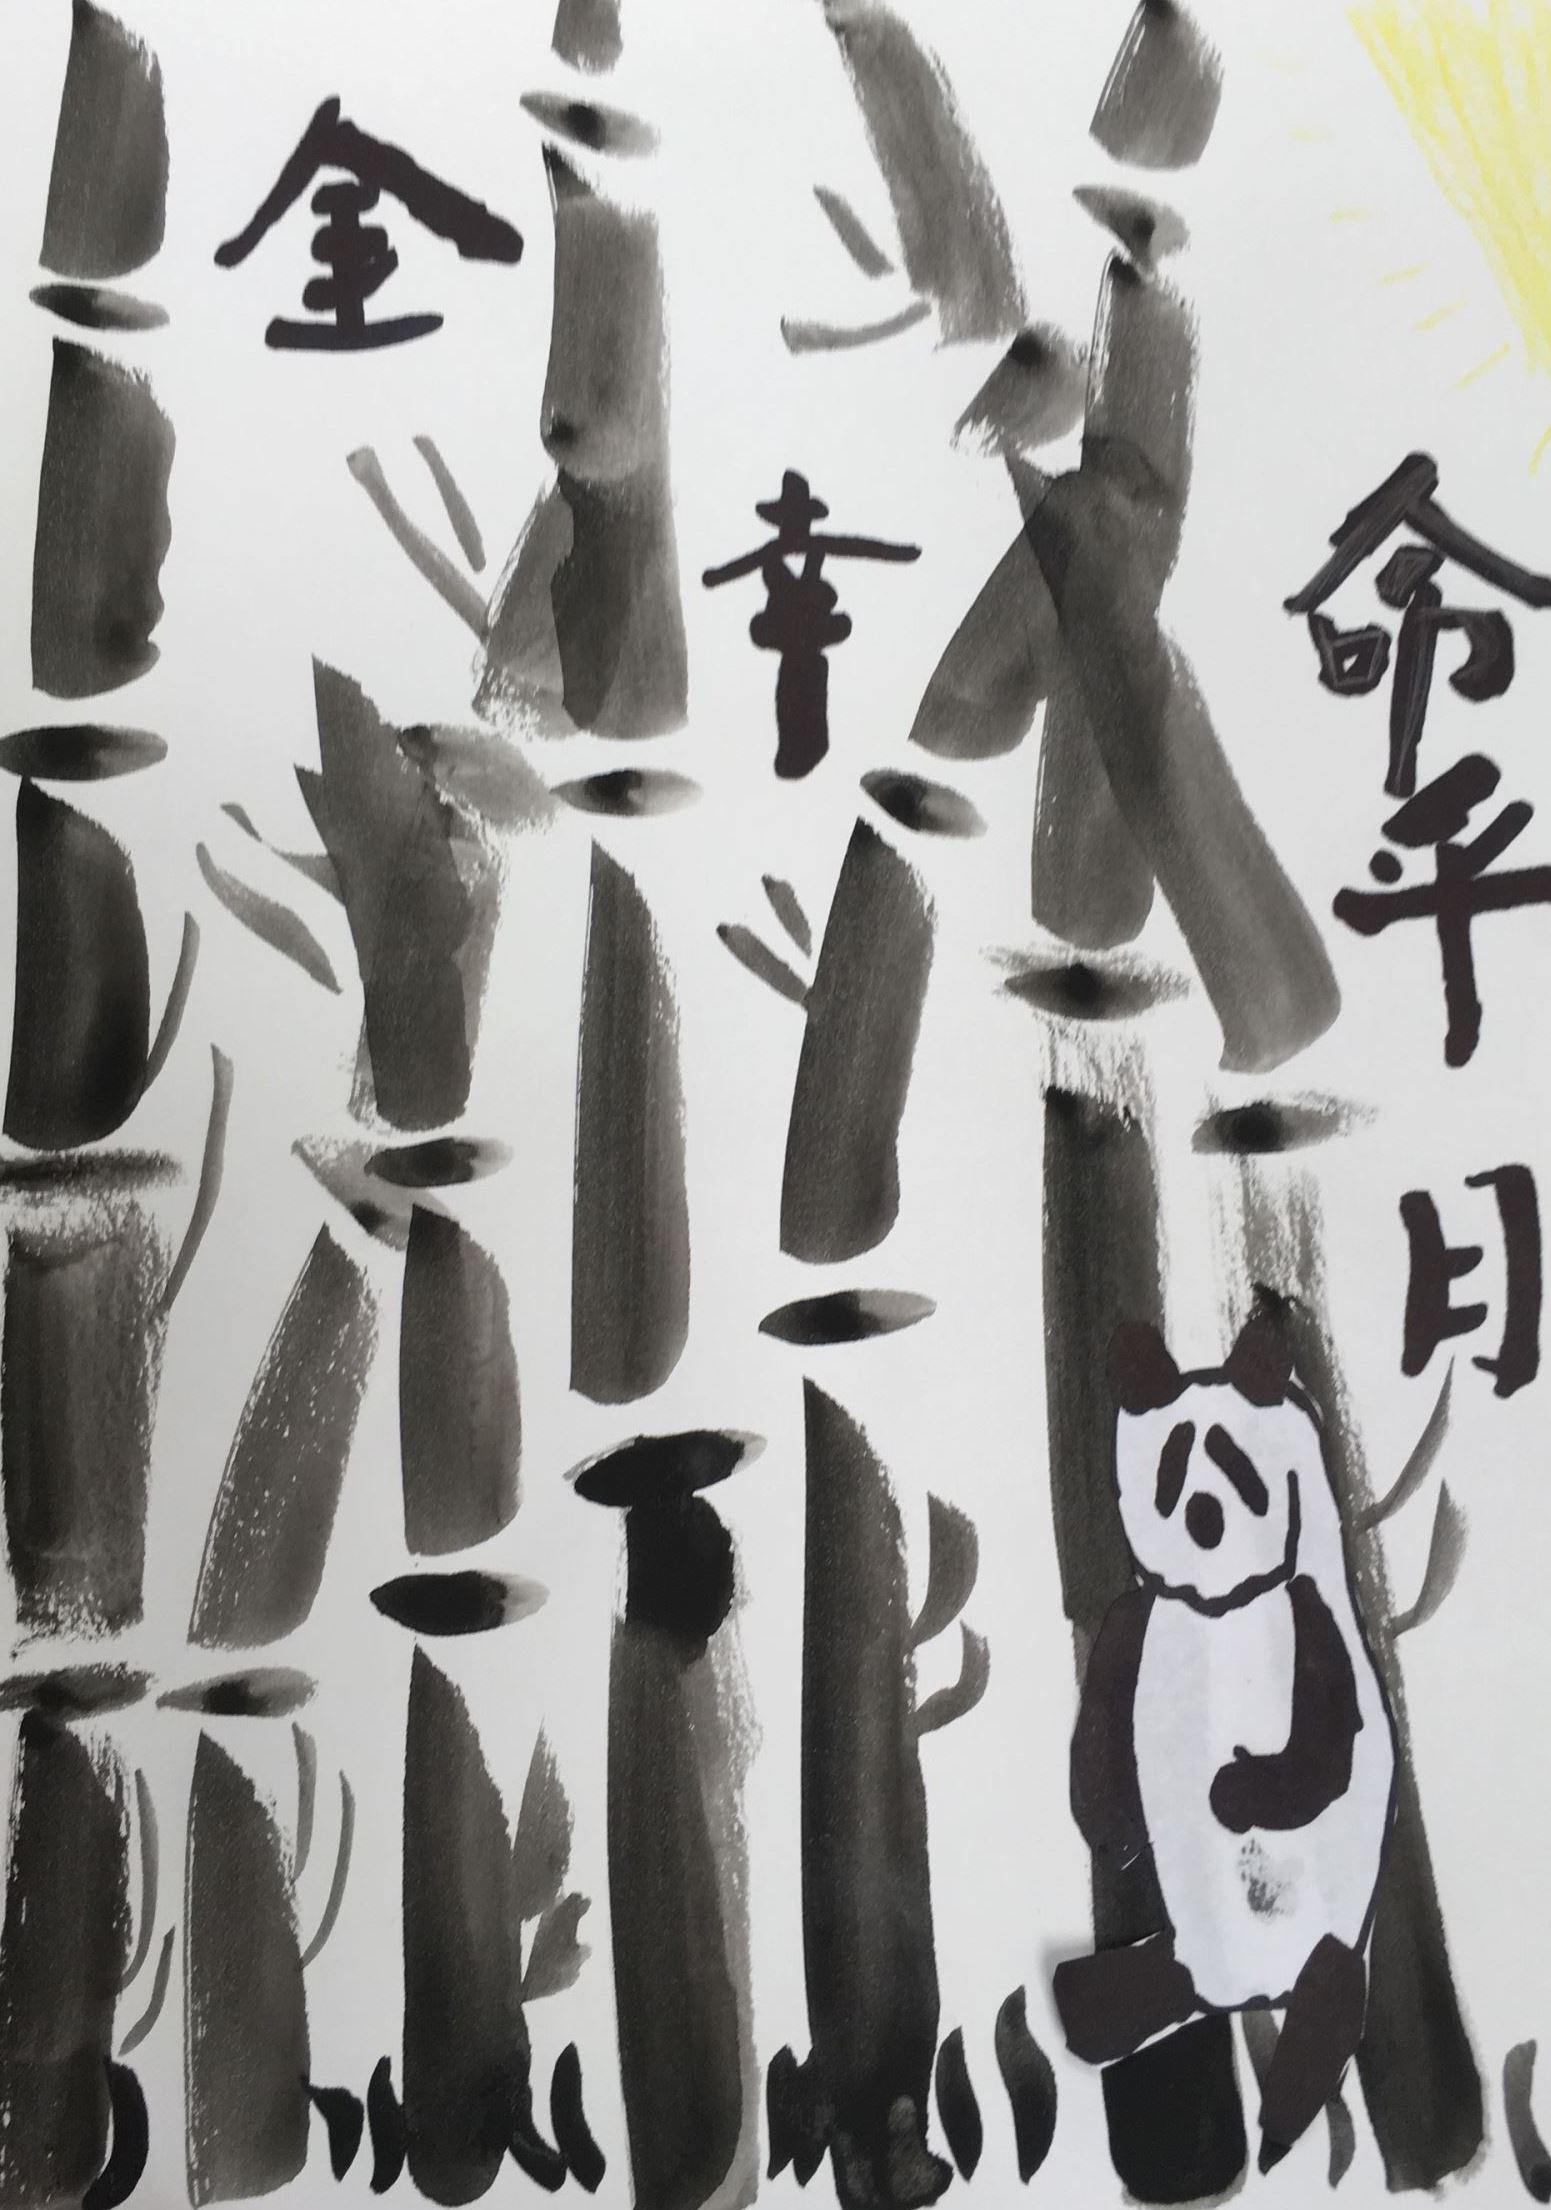 金
幸
命
平
月